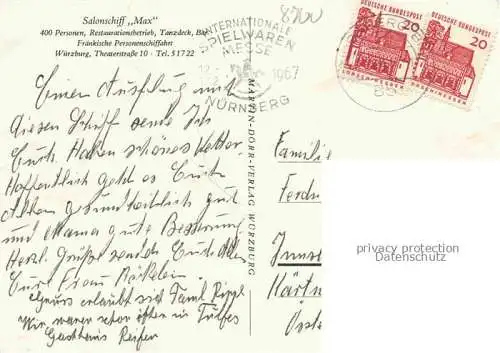 Salonschiff „Max"
400 Personen, Restaurationsbetrieb, Tanzdeck, Bar
Fränkische Personenschiffahrt
Würzburg, Theaterstraße 10 · Tel. 51722
8700
INTERNATIONALE
SPIELWAREN
MESSE
1967
NÜRNBERG
DEUTSCHE BUNDESPOST
20
LORSCH/HESSEN
DEUTSCHE BUNDESPOST
20
LORSCH/HESSEN
85
Einen Ausflug mit
diesen Schiff sende Ich
Euch. Haben schönes Wetter.
Hoffentlich geht es Euch
Allen gesundheitlich gut
und Mama gute Besserung
Herzl. Grüße sendet Euch Allen
Eure Frau Märklein.
Gruß erlaubt sich Faml.
Wir waren schon öfters in Tulfes
Gasthaus Reifen
MARTIN-DÖRR-VERLAG WÜRZBURG
Familie
Ferd
Inns
privacy protection
Datenschutz